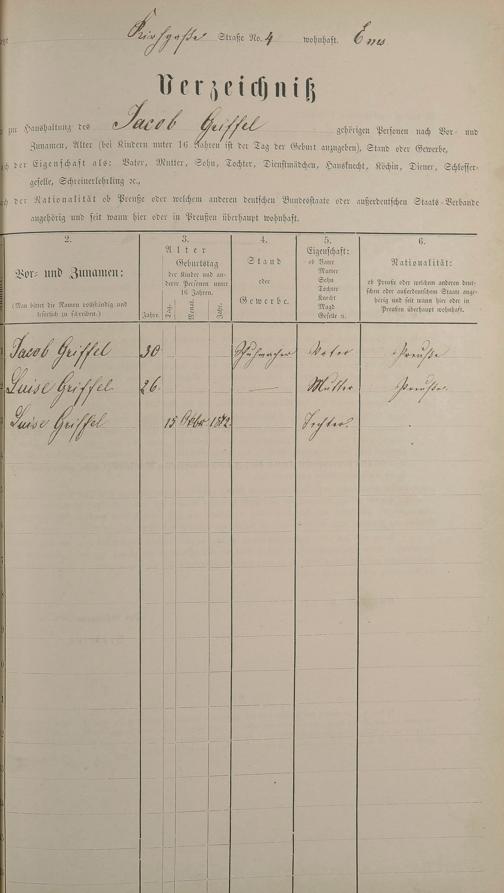 Kirchgasse Straße No. 4 wohnhaft. Ems
Verzeichniß
zur Haushaltung des Jacob Griffel gehörigen Personen nach Vor- und
Zunamen, Alter (bei Kindern unter 16 Jahren ist der Tag der Geburt anzugeben), Stand oder Gewerbe,
der Eigenschaft als: Vater, Mutter, Sohn, Tochter, Dienstmädchen, Hausknecht, Köchin, Diener, Schlosser-
geselle, Schreinerlehrling ꝛc.,
der Nationalität ob Preuße oder welchem anderen deutschen Bundesstaate oder außerdeutschen Staats-Verbande
angehörig und seit wann hier oder in Preußen überhaupt wohnhaft.
2.
Vor- und Zunamen:
(Man bittet die Namen vollständig und
leserlich zu schreiben.)
3.
Alter
Geburtstag
der Kinder und an-
derer Personen unter
16 Jahren.
Jahre.
Tag.
Monat.
Jahr.
4.
Stand
oder
Gewerbe.
5.
Eigenschaft:
ob Vater
Mutter
Sohn
Tochter
Knecht
Magd
Geselle u.
6.
Nationalität:
ob Preuße oder welchem anderen deut-
schen oder außerdeutschen Staate ange-
hörig und seit wann hier oder in
Preußen überhaupt wohnhaft.
Jacob Griffel 30 Schuhmacher Vater Preuße
Luise Griffel 26 — Mutter Preuße.
Luise Griffel 15 1872. Tochter.